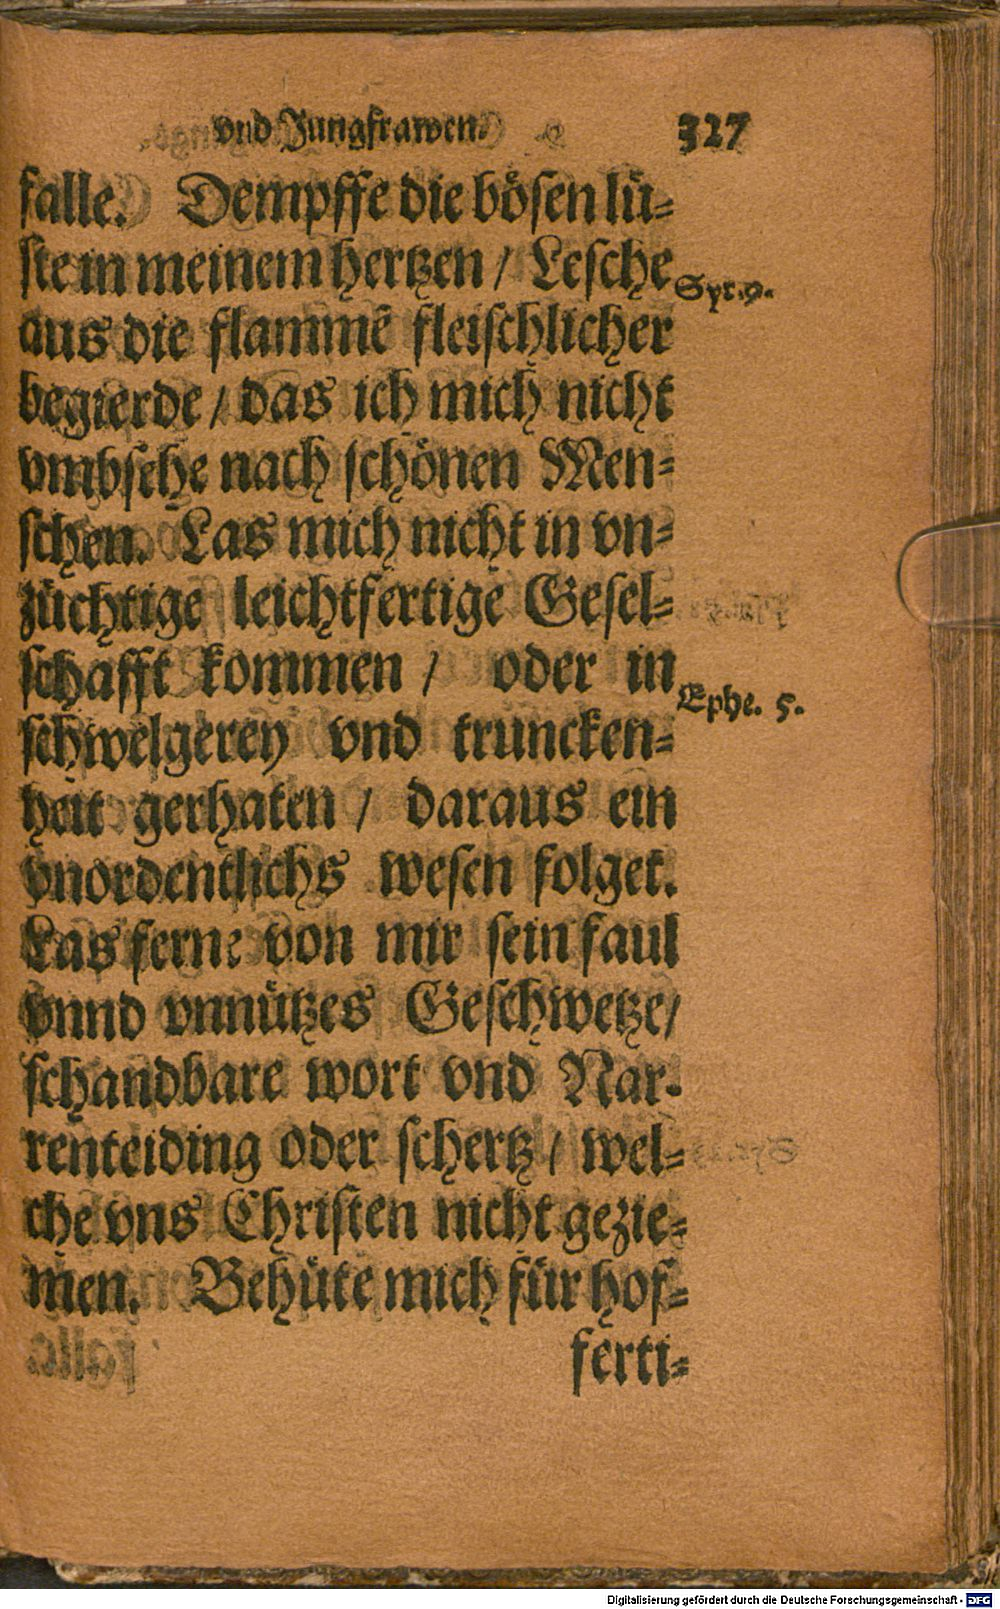 vnd Jungfrawen. 327
falle. Dempffe die bösen lü=
ste in meinem hertzen / Lesche
Syr. 9.
aus die flammē fleischlicher
begierde / das ich mich nicht
vmbsehe nach schönen Men=
schen. Las mich nicht in vn=
züchtige leichtfertige Gesel=
schafft kommen / oder in
Ephe. 5.
schwelgerey vnd truncken=
heit gerhaten / daraus ein
vnordentlichs wesen folget.
Las ferne von mir sein faul
vnnd vnnützes Geschwetze /
schandbare wort vnd Nar=
renteiding oder schertz / wel=
che vns Christen nicht gezie=
men. Behüte mich für hof=
ferti=
Digitalisierung gefördert durch die Deutsche Forschungsgemeinschaft - DFG